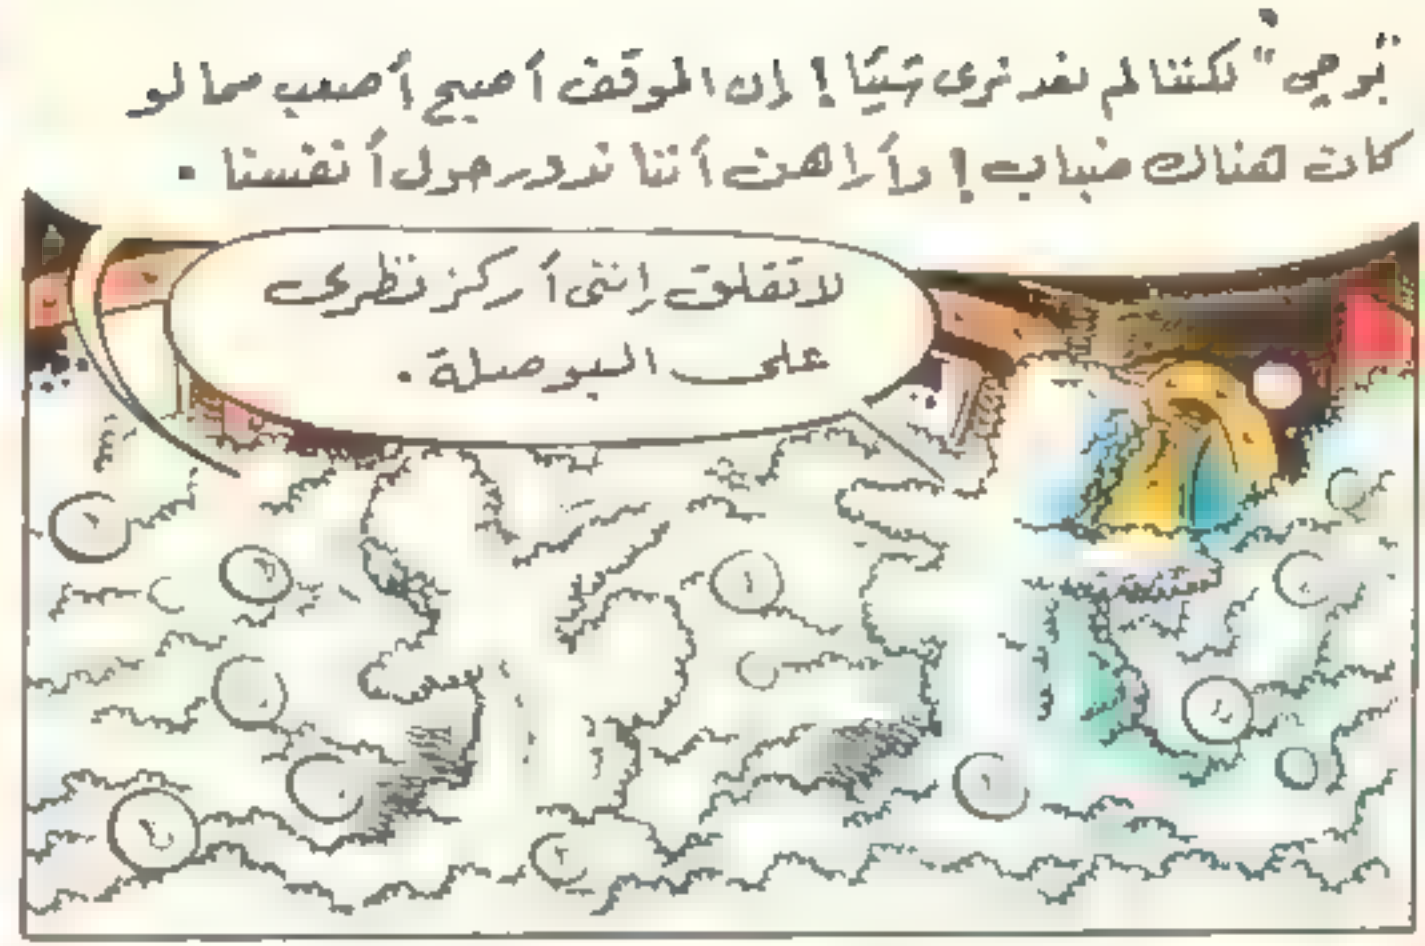 بوجي" لكننا لم نعد نرى شيئا! إن الموقف أصبح أصعب مما لو
كان هناك ضباب! وأراهن أننا ندور حول أنفسنا.
لا تقلق إننى أركز نظرى
على البوصلة.